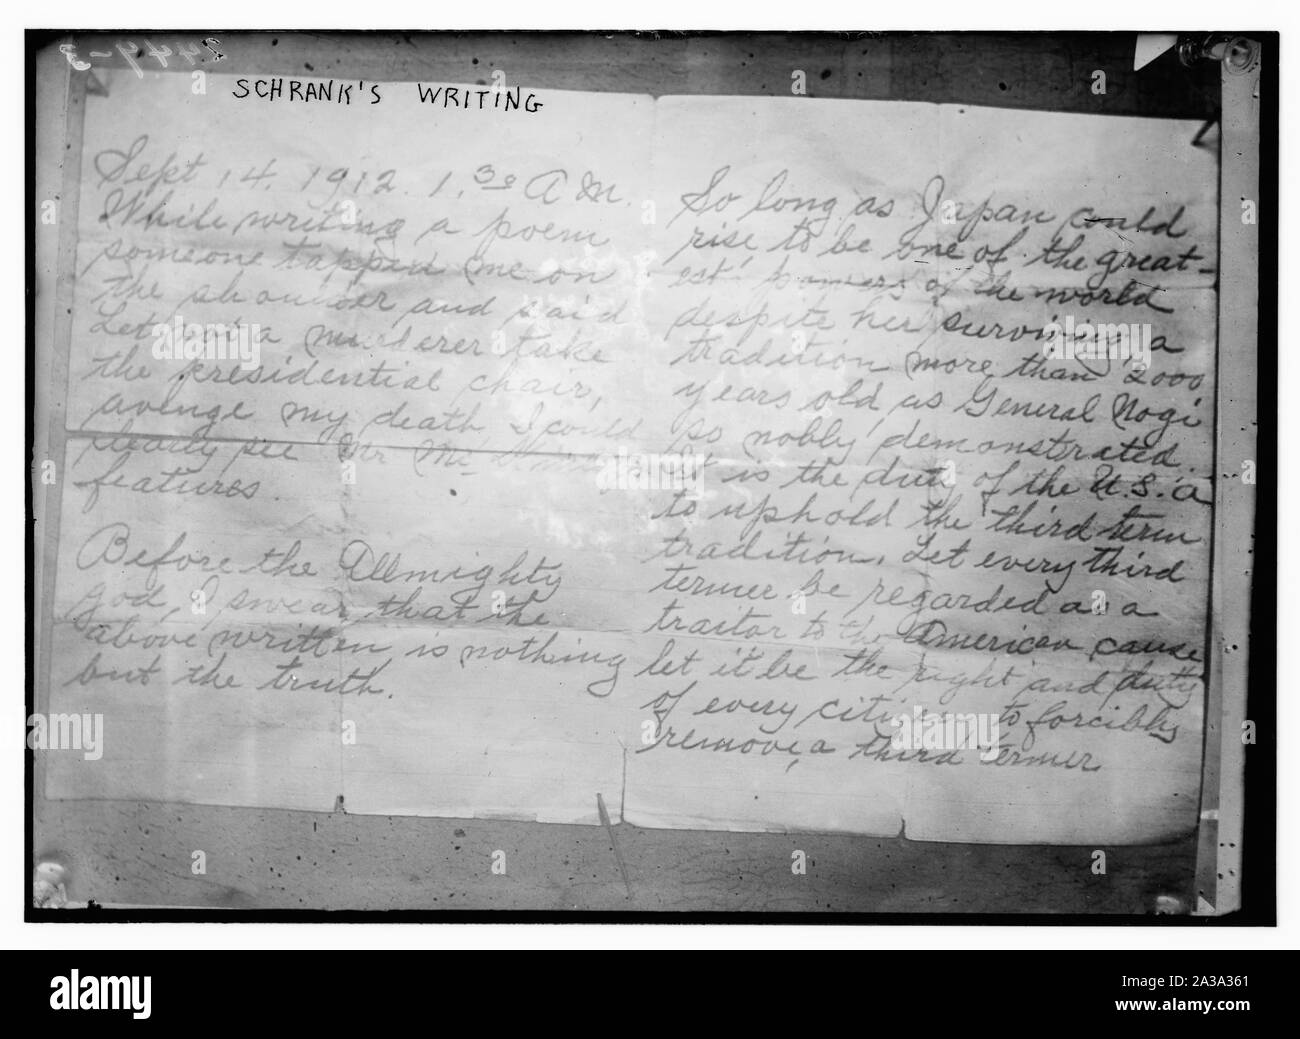 2444-3
SCHRANK'S WRITING
Sept 14. 1912. 1.30 A M.
While writing a poem
someone tapped me on
the shoulder and said
Let not a murderer take
the presidential chair,
avenge my death. I could
clearly see Mr Mc
features.
Before the Allmighty
god, I swear, that the
above written is nothing
but the truth.
So long as Japan could
rise to be one of the great-
est powers of the world
despite her surviving a
tradition more than 2000
years old, as General Nogi
so nobly demonstrated.
It is the duty of the U.S.A
to uphold the third term
tradition. Let every third
termer be regarded as a
traitor to the American cause
let it be the right and duty
of every citizen to forcibly
remove, a third termer
alamy
alamy
Image ID: 2A3A361
www.alamy.com